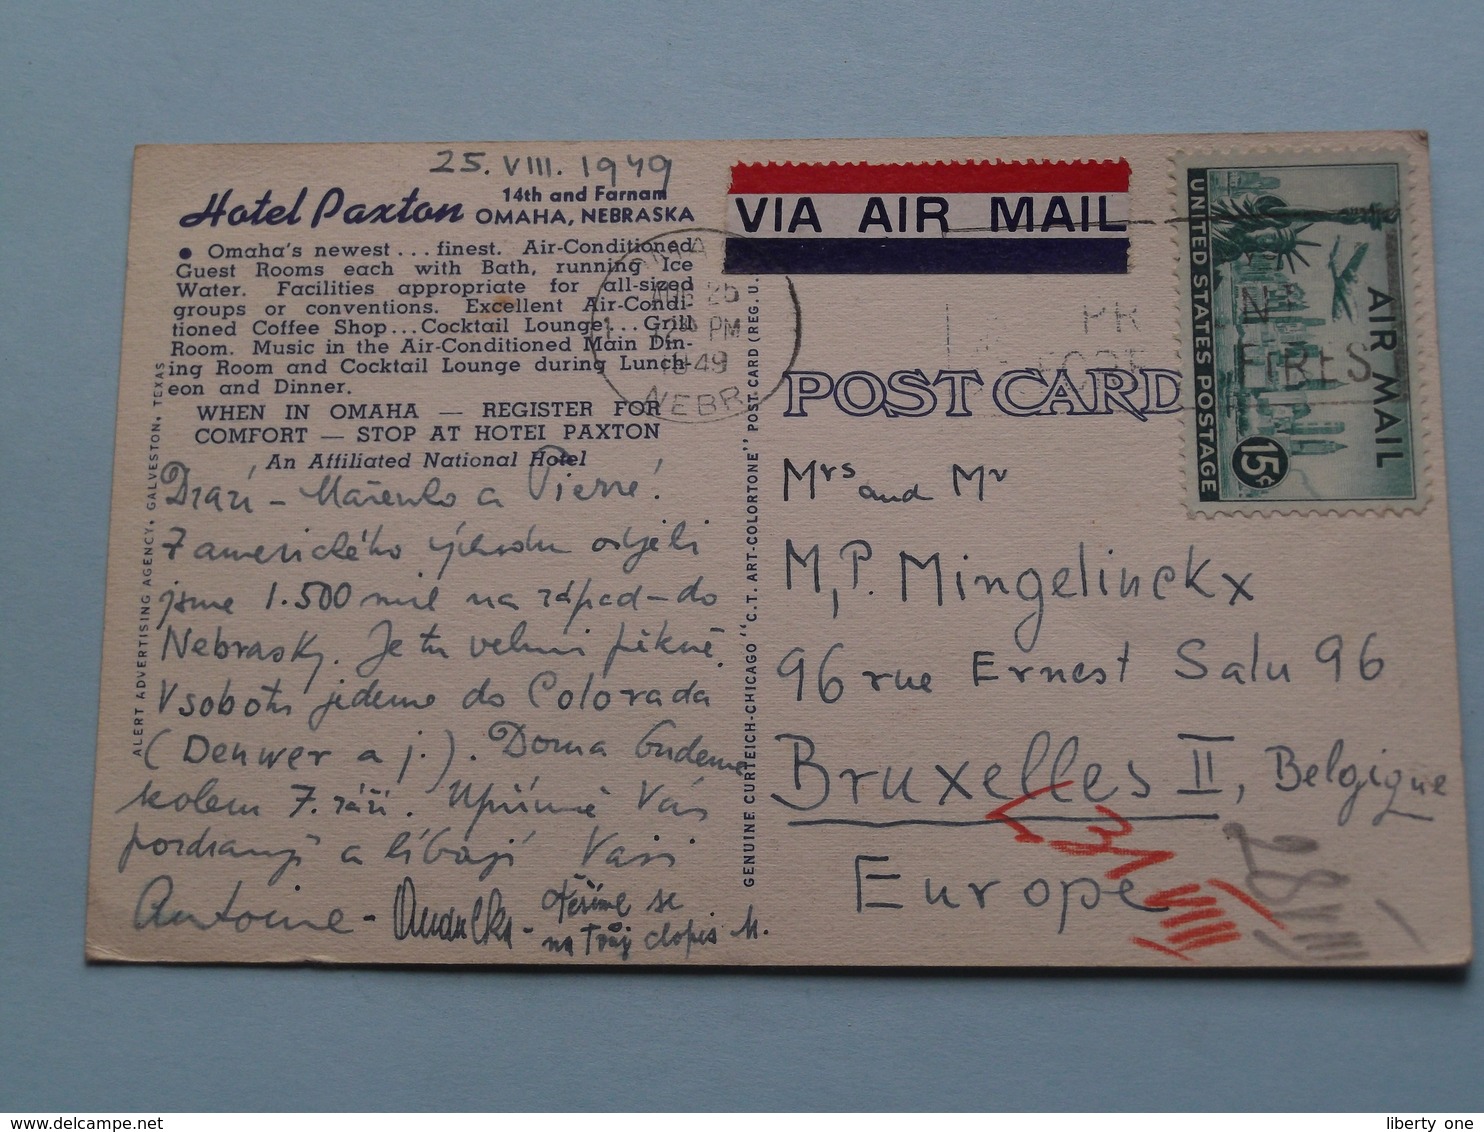 25. VIII. 1949
Hotel Paxton
14th and Farnam
OMAHA, NEBRASKA
• Omaha's newest ... finest. Air-Conditioned
Guest Rooms each with Bath, running Ice
Water. Facilities appropriate for all-sized
groups or conventions. Excellent Air-Condi-
tioned Coffee Shop... Cocktail Lounge... Grill
Room. Music in the Air-Conditioned Main Din-
ing Room and Cocktail Lounge during Lunch-
eon and Dinner.
WHEN IN OMAHA — REGISTER FOR
COMFORT — STOP AT HOTEL PAXTON
An Affiliated National Hotel
Drazí - Mařenko a Pierre!
Z amerického východu odjeli
jsme 1.500 mil na západ - do
Nebrasky. Je tu velmi pěkně.
V sobotu jedeme do Colorada
(Denwer a j.). Doma budeme
kolem 7. září. Upřímně Vás
pozdravují a líbají Vaši
Antoine -
těšíme se
na Tvůj dopis M.
ALERT ADVERTISING AGENCY, GALVESTON, TEXAS
GENUINE CURTEICH-CHICAGO "C.T. ART-COLORTONE" POST CARD (REG. U.
VIA AIR MAIL
AUG 25
PM
1949
NEBR
POST CARD
UNITED STATES POSTAGE
AIR MAIL
15¢
Mrs and Mr
M, P. Mingelinckx
96 rue Ernest Salu 96
Bruxelles II, Belgique
Europe
31 VIII
28 VIII
liberty one